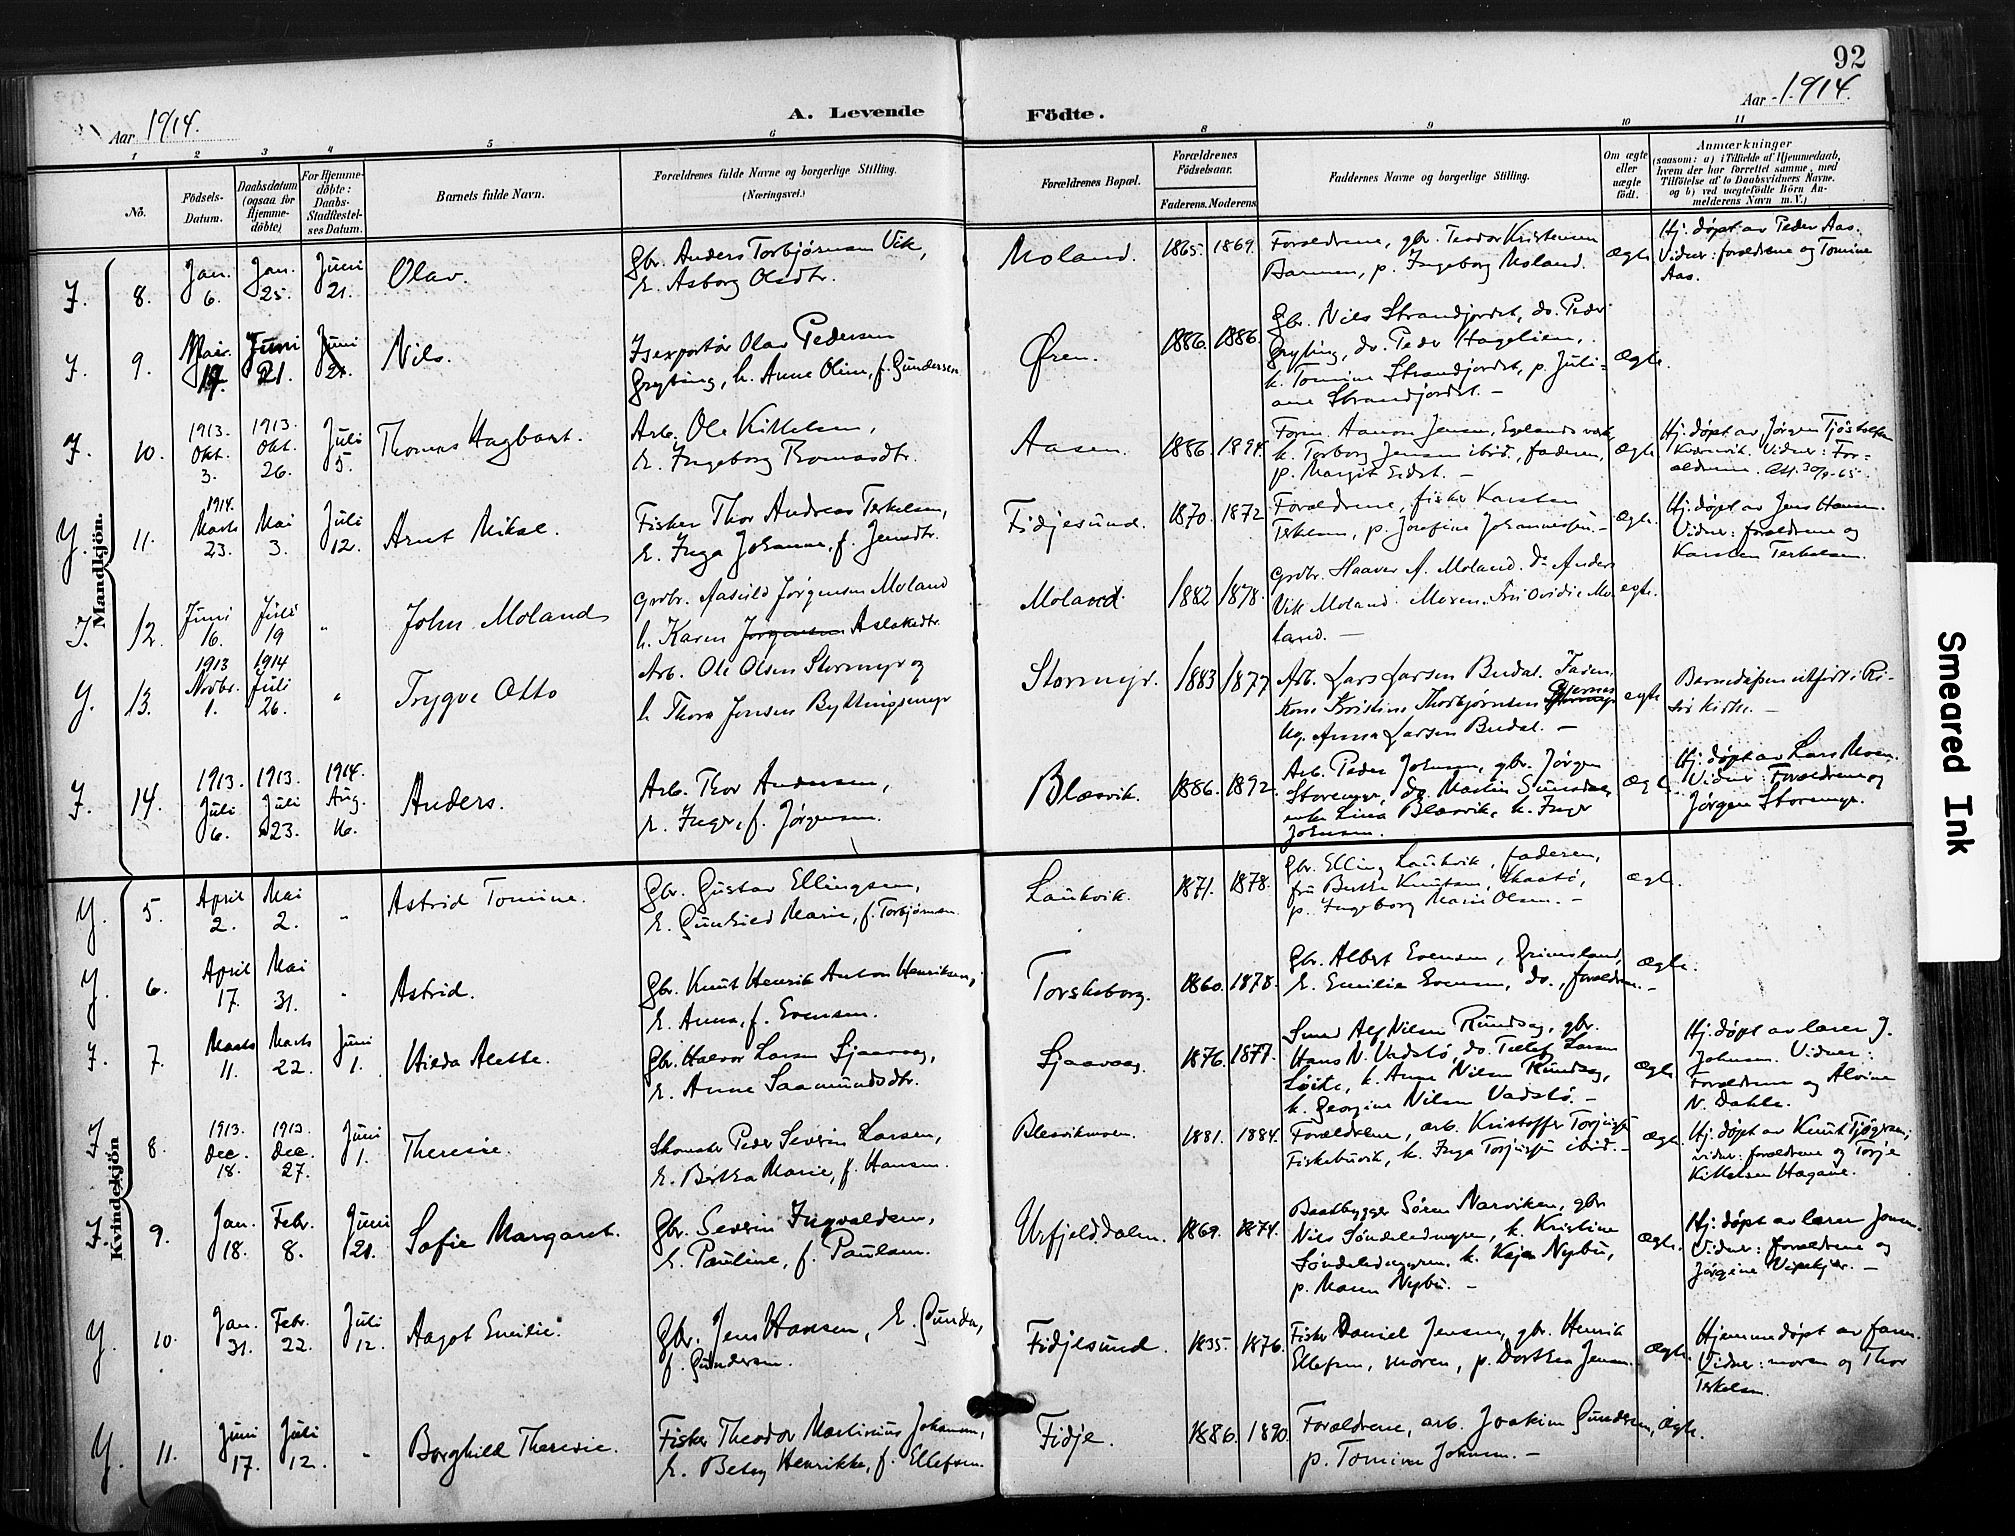 92
Aar 1914.
A. Levende
Födte.
Aar 1914.
1 2 3 4 5 6 8 9 10 11
No.
Födsels-
Datum.
Daabsdatum
(ogsaa for
Hjemme-
döbte)
For Hjemme-
döbte:
Daabs-
Stadfestel-
ses Datum.
Barnets fulde Navn.
Forældrenes fulde Navne og borgerlige Stilling.
(Næringsvei.)
Forældrenes Bopæl.
Forældrenes
Födselsaar.
Faderens. Moderens
Faddernes Navne og borgerlige Stilling.
Om ægte
eller
uægte
födt.
Anmærkninger
(saasom: a) i Tilfælde af Hjemmedaab,
hvem der har forrettet samme, med
Tilföielse af to Daabsvidners Navne.
og b) ved uægtefödte Börn An-
melderens Navn m. V.)
Mandkjön.
8.
Jan.
6.
Jan.
25.
Juni
21.
Olav.
Gbr. Anders Torbjørnsen Vik,
E. Asborg Olsdtr.
Moland.
1865. 1869.
Forældrene, gbr. Teodor Kristensen
Barmen, p. Ingeborg Moland.
ægte
Hj. døpt av Peder Aas.
Vidner: forældrene og Tomine
Aas.
9.
Mai.
Juni
21.
Juni
21.
Nils.
Isexportør Olav Pedersen
Gryting, h. Anne Oline, f. Gundersen
Øren.
1886. 1886.
Gbr. Nils Strandjordet, do. Peder
Gryting, do. Peder Hagelien,
k. Tomine Strandjordet, p. Juli-
ane Strandjordet. –
Ægte.
10.
1913.
Okt.
3.
1913.
Okt.
26.
Juli
5.
Thomas Hagbart.
Arb. Ole Kittelsen,
E. Ingeborg Tomasdtr.
Aasen.
1886. 1894.
Form. Aanon Jensen, Egelands verk,
k. Torborg Jensen ibid., faderen,
p. Margit Eidet. –
ægte
Hj. døpt av Jørgen Tjøstolfsen
Kvernvik. Vidner: For-
ældrene.
11.
1914.
Marts
23.
Mai
3.
Juli
12.
Arnt Mikal.
Fisker Thor Andreas Terkelsen,
E. Inga Johanne, f. Jensdtr.
Fidjesund.
1870. 1872
Forældrene, fisker Karsten
Terkelsen, p. Josefine Johannessen. –
ægte.
Hj. døpt av Jens Hansen.
Vidner: forældrene og
Karsten Terkelsen.
12.
Juni
16.
Juli
19
"
John Moland
Grdbr. Aasuld Jørgensen Moland
h. Karen Jørgensen Aslaksdtr.
Moland
1882 1878.
Grdbr. Haaver A. Moland. Do Anders
Vik Moland. Moren. Fru Ovidie Mo-
land. –
egte.
13.
1913
Novbr.
1.
1914
Juli
26.
"
Trygve Otto
Arb. Ole Olsen Stormyr og
h. Thora Jensen Byttingsmyr
Stormyr.
1883 1877
Arb. Lars Larsen Budal. Faderen
Kone Kristine Thorbjørnsen Gjernes
Ug. Anna Larsen Budal. –
egte
Barnedåpen utført i Ri-
sør kirke. –
14.
1913.
Juli
6.
1913.
Juli
23.
1914.
Aug.
16.
Anders.
Arb. Thor Andersen,
E. Inger, f. Jørgensen.
Blæsvik.
1886. 1892.
Arb. Peder Johnsen, gbr. Jørgen
Storemyr, do Martin
enke Lina Blæsvik, k. Inger
Johnsen.
Ægte
Hj. døpt av Lars Moen.
Vidner: Forældrene og
Jørgen Storemyr.
Kvindekjön
5.
April
2.
Mai
2.
"
Astrid Tomine.
Gbr. Gustav Ellingsen,
E. Gunhild Marie, f. Torbjørnsen.
Laukvik.
1871. 1878.
Gbr. Elling Laukvik, faderen,
fru Berthe Knutsen, Skaatø,
p. Ingeborg Marie Olsen. –
Ægte.
6.
April
17.
Mai
31.
"
Astrid.
Gbr. Knut Henrik Anton Henriksen,
E. Anna, f. Evensen.
Torskeberg.
1860. 1878.
Gbr. Albert Evensen, Grimsland,
E. Emilie Evensen, do., forældrene. –
Ægte.
7.
Marts
11.
Marts
22.
Juni
1.
Hilda Alette.
Gbr. Halvor Larsen Sjaavaag,
E. Anne Saamundsdtr.
Sjaavaag.
1876. 1877.
Smed Alf Nilsen Rundsag, gbr.
Hans N. Vadstø, do. Tellef Larsen
Løite, k. Anne Nilsen Rundsag,
k. Georgine Nilsen Vadstø. –
ægte
Hj. døpt av lærer J.
Johnsen. Vidner:
Forældrene og Alvine
N. Dahle.
8.
1913.
Dec.
18.
1913.
Dec.
27.
Juni
1.
Theresie.
Skomaker Peder Severin Larsen,
E. Bertha Marie, f. Hansen.
Blesvikmoen.
1881. 1884.
Forældrene, arb. Kristoffer Torjussen
Fiskebuvik, k. Inga Torjussen ibid. –
Ægte
Hj. døpt av Knut Tjøgersen,
vidner: forældrene og Torje
Kittelsen Hagane.
9.
Jan.
18.
Febr.
8.
Juni
21.
Sofie Margaret.
Gbr. Severin Ingvaldsen,
E. Pauline, f. Paulsen.
Urfjelddalen.
1869. 1874.
Baadbygger Søren Narviken, gbr
Nils Søndeledmyren, k. Kristine
Søndeledmyren. k. Kaja Nybu,
p. Maren Nybu. –
Ægte.
Hj. døpt av lærer Jensen.
Vidner: forældrene og
Jørgine Vipekjær. –
10.
Jan.
31.
Febr.
22.
Juli
12.
Aagot Emilie.
Gbr. Jens Hansen, E. Gunda,
f. Gundersen.
Fidjesund.
1835. 1876.
Fisker Daniel Jensen, gbr. Henrik
Ellefsen, moren, p. Dorthea Jensen.
Ægte.
Hjemmedøpt av faren.
Vidner: moren og Thor
Terkelsen.
11.
Juni
17.
Juli
12.
"
Borghild Theresie.
Fisker Theodor Martinius Johansen,
E. Betsy Henrikke, f. Ellefsen.
Fidje.
1886. 1890.
Forældrene, arb. Joakim Gundersen,
p. Tomine Johnsen. –
Ægte.
Smeared Ink